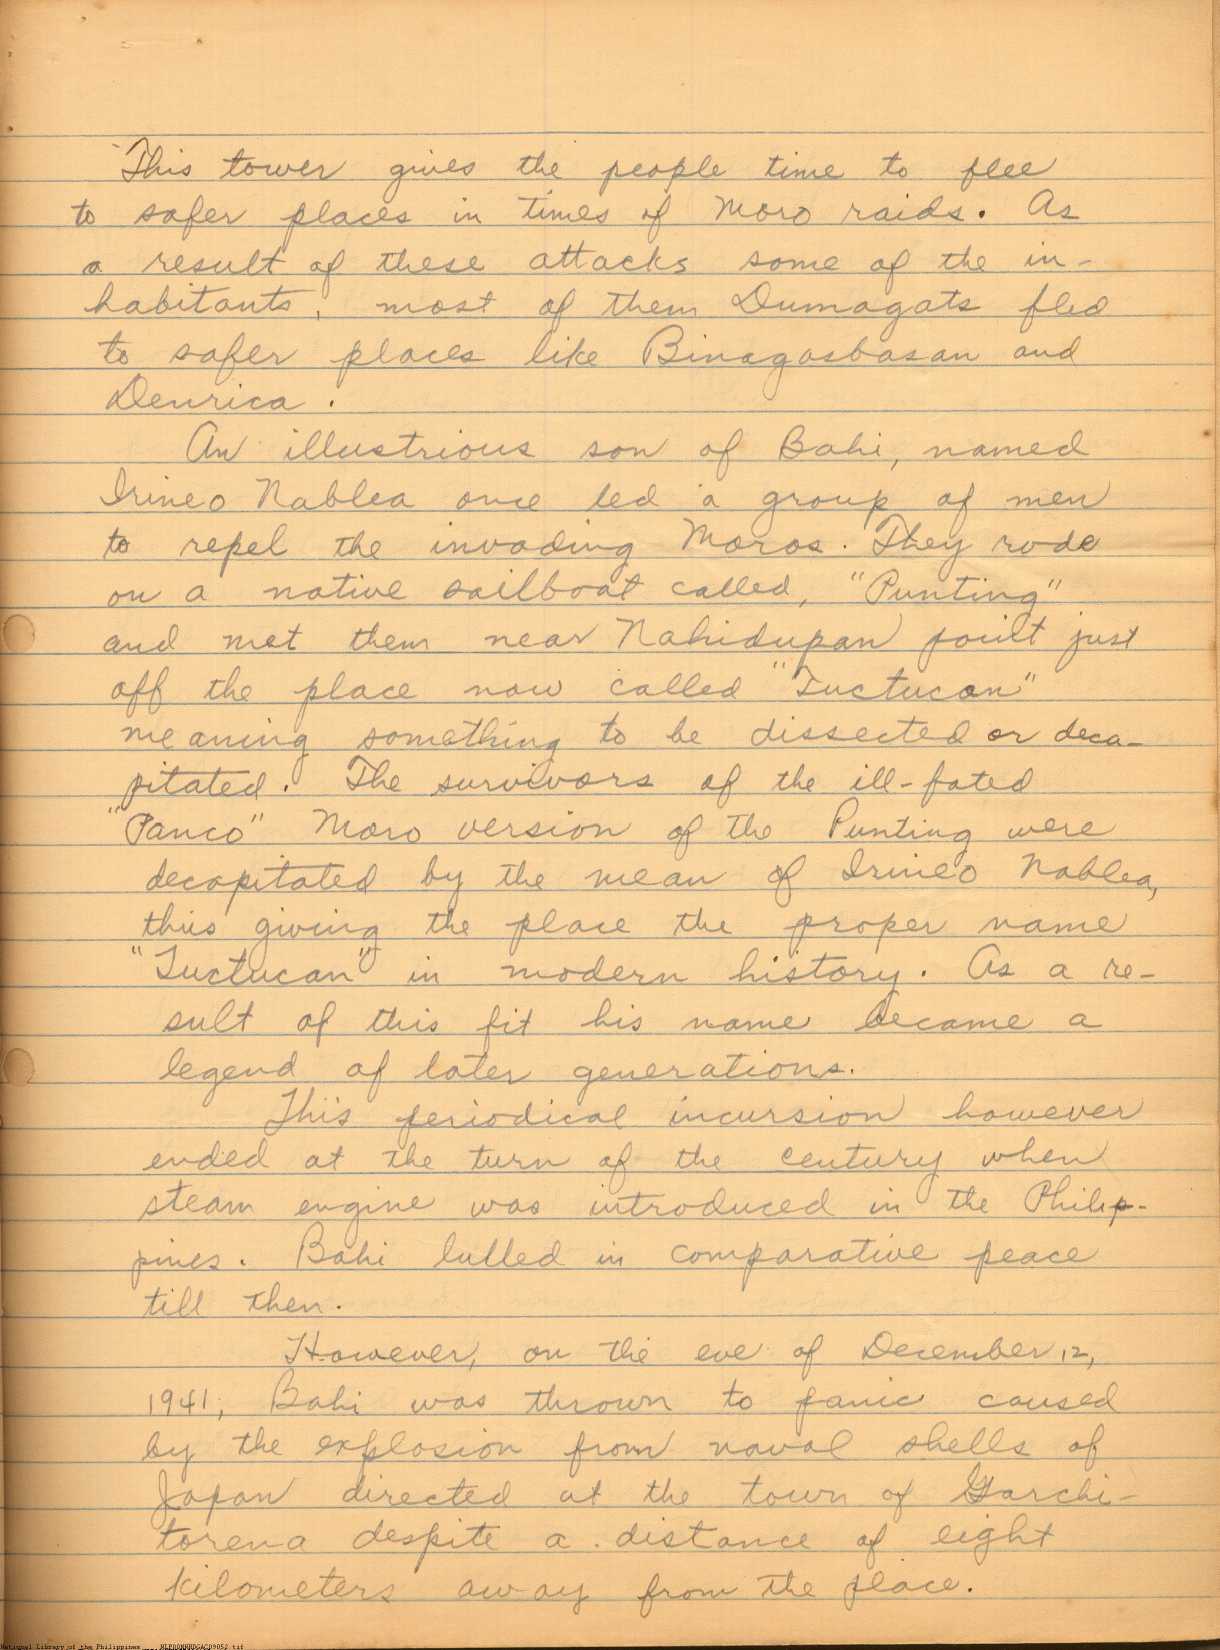 This tower gives the people time to flee
to safer places in times of Moro raids. As
a result of these attacks some of the in-
habitants, most of them Dumagats fled
to safer places like Binagasbasan and
Denrica.
An illustrious son of Bahi, named
Irineo Nablea once led a group of men
to repel the invading Moros. They rode
on a native sailboat called, "Punting"
and met them near Nahidupan point just
off the place now called "Tuctucan"
meaning something to be dissected or deca-
pitated. The survivors of the ill-fated
"Panco" Moro version of the Punting were
decapitated by the mean of Irineo Nablea,
thus giving the place the proper name
"Tuctucan" in modern history. As a re-
sult of this fit his name became a
legend of later generations.
This periodical incursion however
ended at the turn of the century when
steam engine was introduced in the Philip-
pines. Bahi lulled in comparative peace
till then.
However, on the eve of December 12,
1941, Bahi was thrown to panic caused
by the explosion from naval shells of
Japan directed at the town of Garchi-
torena despite a distance of eight
kilometers away from the place.
National Library of the Philippines